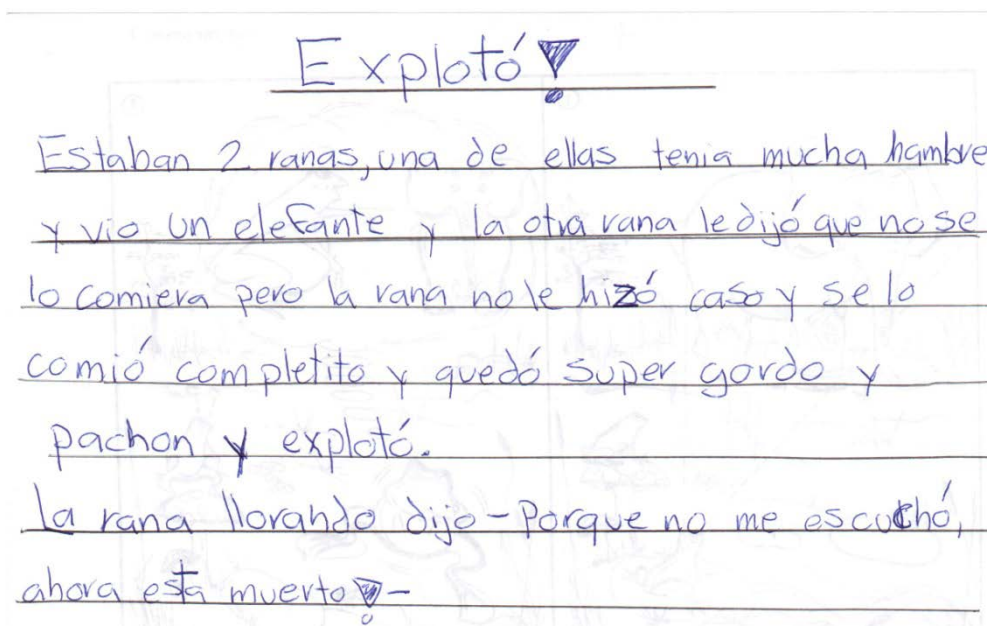 Explotó!
Estaban 2 ranas, una de ellas tenia mucha hambre
y vio un elefante y la otra rana le dijó que no se
lo comiera pero la rana no le hizó caso y se lo
comió completito y quedó super gordo y
pachon y explotó.
La rana llorando dijo - Porque no me escuchó,
ahora esta muerto! -